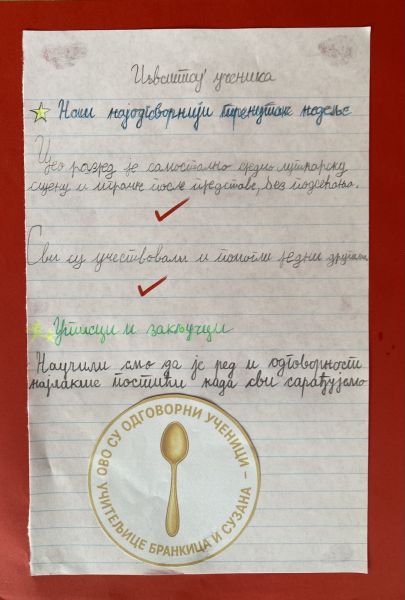 Извештај ученика
Наш најодговорнији тренутак недеље
Цео разред је самостално средио луткарску
сцену и играчке после представе, без подсећања.
Сви су учествовали и помогли једни другима
Утисци и закључци
Научили смо да је ред и одговорности
најлакше постићи када сви сарађујемо
ОВО СУ ОДГОВОРНИ УЧЕНИЦИ –
УЧИТЕЉИЦЕ БРАНКИЦА И СУЗАНА